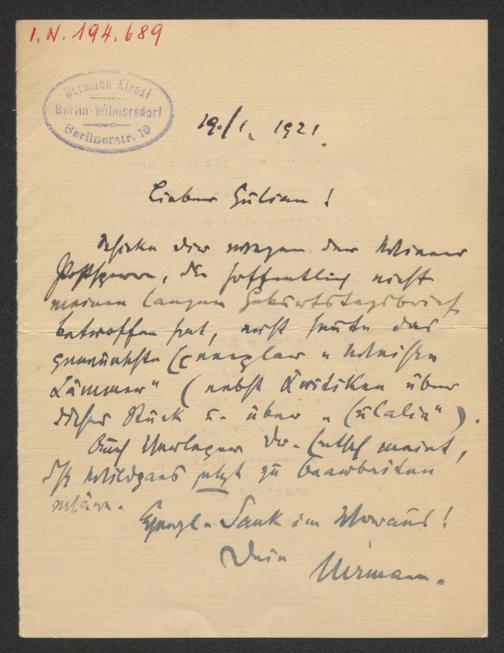 I.N. 194.689
Hermann Kienzl
Berlin-Wilmersdorf
Berlinerstr. 10
19./1. 1921.
Lieber Gülian!
Schicke dir wegen der Wiener
Postsperre, die hoffentlich nicht
meinen langen Geburtstagsbrief
betroffen hat, erst heute das
gewünschte Exemplar
(nebst Kritiken über
dieses Stück u. über
Auch Verleger Dr. meint,
Wildgans jetzt zu bearbeiten
wäre.
Herzl. Dank im Voraus!
Dein Hermann.